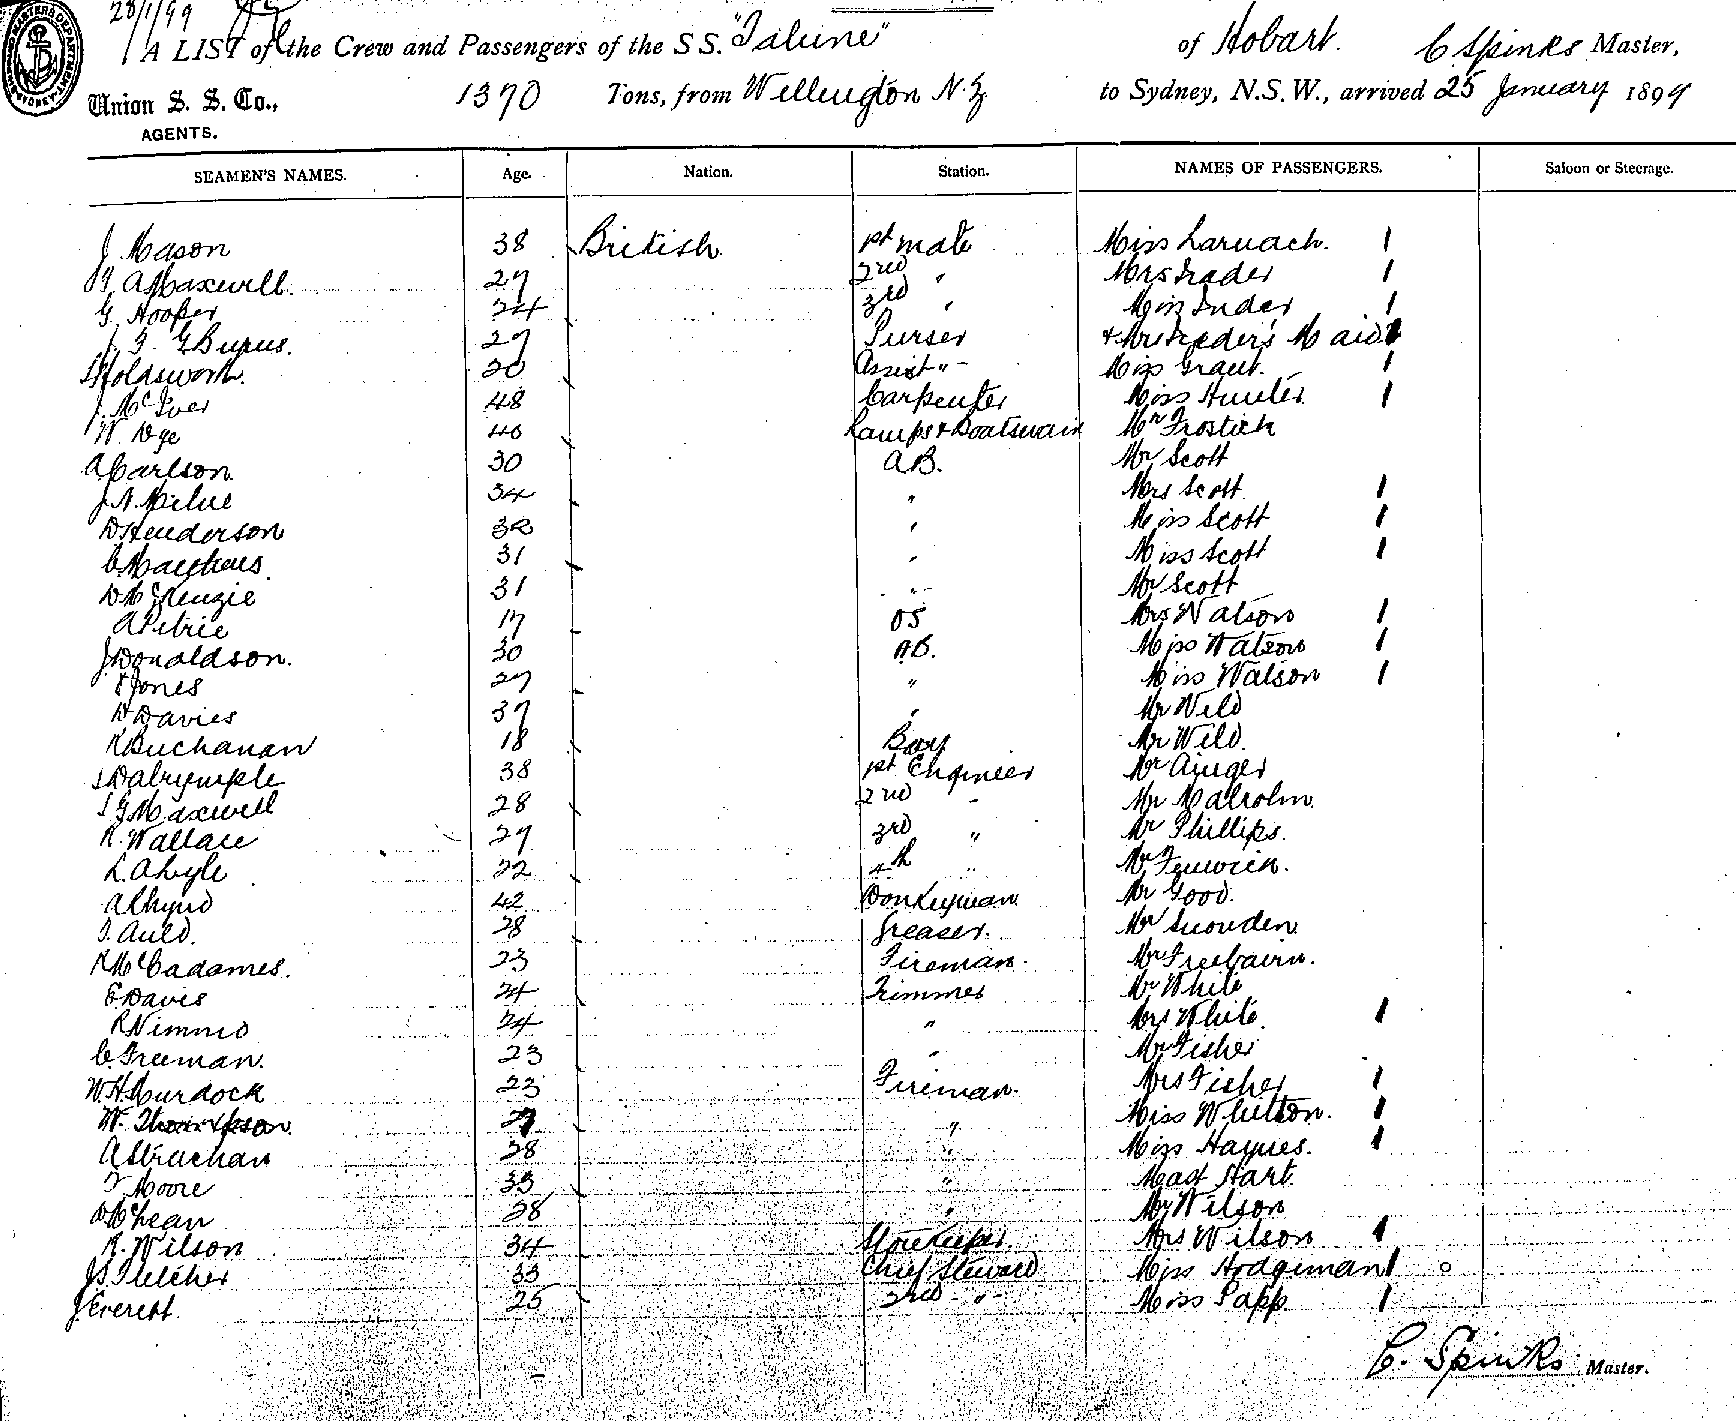 28/1/99
A LIST of the Crew and Passengers of the S S. "Talune" of Hobart. C Spinks Master,
Union S. S. Co., AGENTS. 1370 Tons, from Wellington N.Z to Sydney, N.S.W., arrived 25 January 1899
SEAMEN'S NAMES. Age. Nation. Station. NAMES OF PASSENGERS. Saloon or Steerage.
J. Mason 38 British 1st mate Miss Larnach. 1
A Maxwell. 27 2nd " Mrs 1
G. Hooper 24 3rd " Miss 1
G Burns. 27 Purser & Maid 1
Holdsworth. 20 Assist " Miss Grant. 1
J. McIver 48 Carpenter Miss Hunter. 1
W. Dye 40 Lamps & Boatswain Mr Frostick
A Carlson. 30 A.B. Mr Scott
J. N. Milne 34 " Mrs Scott 1
D Henderson 32 " Miss Scott 1
C Matthews. 31 " Miss Scott 1
D McKenzie 31 " Mr Scott
A Petrie 17 OS Mrs Watson 1
J Donaldson. 30 AB. Miss Watson 1
Jones 27 " Miss Watson 1
D Davies 37 " Mr Wild
R Buchanan 18 Boy Mr Wild.
Dalrymple 38 1st Engineer Mr Ainger
G Maxwell 28 2nd " Mr Malcolm.
R. Wallace 27 3rd " Mr Phillips.
L. A Lyle 22 4th " Mr Fenwick.
A Rhynd 42 Donkeyman. Mr Good.
Auld. 28 Greaser. Mr Snowden
R McCadames. 23 Fireman. Mr Freebairn.
E Davis 24 Trimmer Mr White
R Nimmo 24 " Mrs White. 1
C. Freeman. 23 " Mr Fisher
W. H Murdock 23 Fireman. Mrs Fisher 1
W. Thompson. 27 " Miss Whitton. 1
A Strachan 28 " Miss Haynes. 1
Moore 33 " Mast Hart.
D McLean 28 " Mr Wilson
R. Wilson 34 Storekeeper Mrs Wilson 1
Fletcher 33 Chief Steward Miss Hodgeman 1
J. Everett. 25 2nd " Miss Papp. 1
C. Spinks Master.